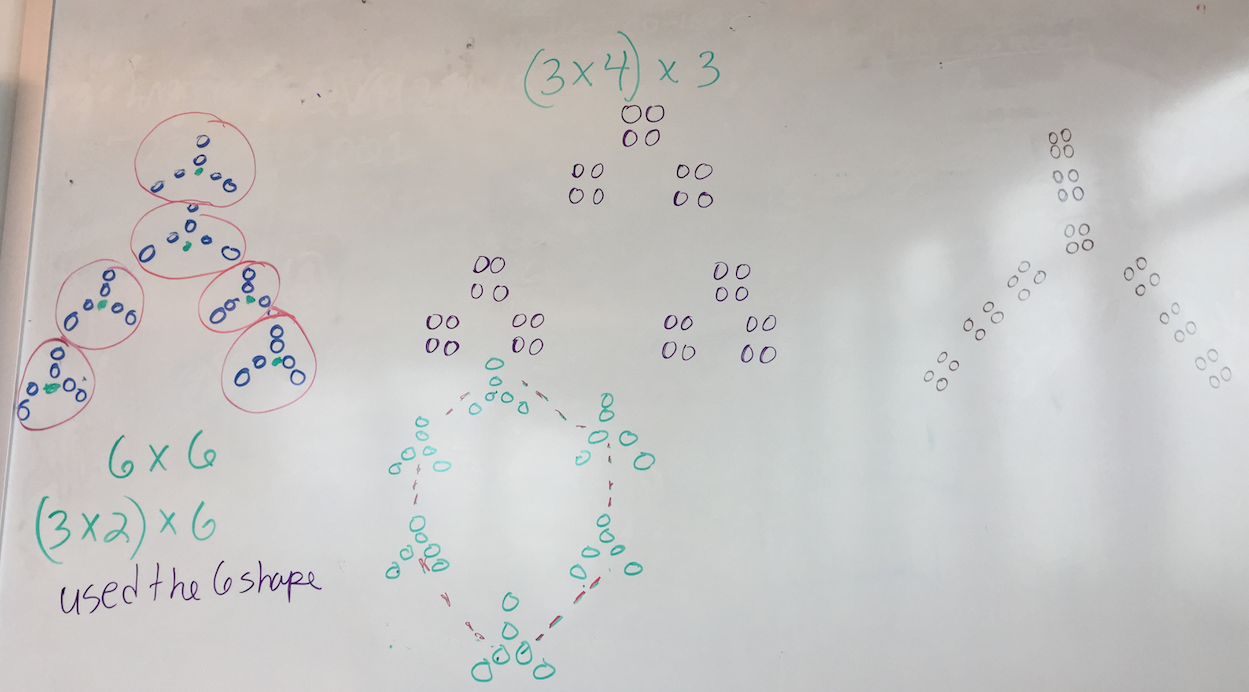 (3×4) × 3
6 × 6
(3×2) × 6
used the 6 shape